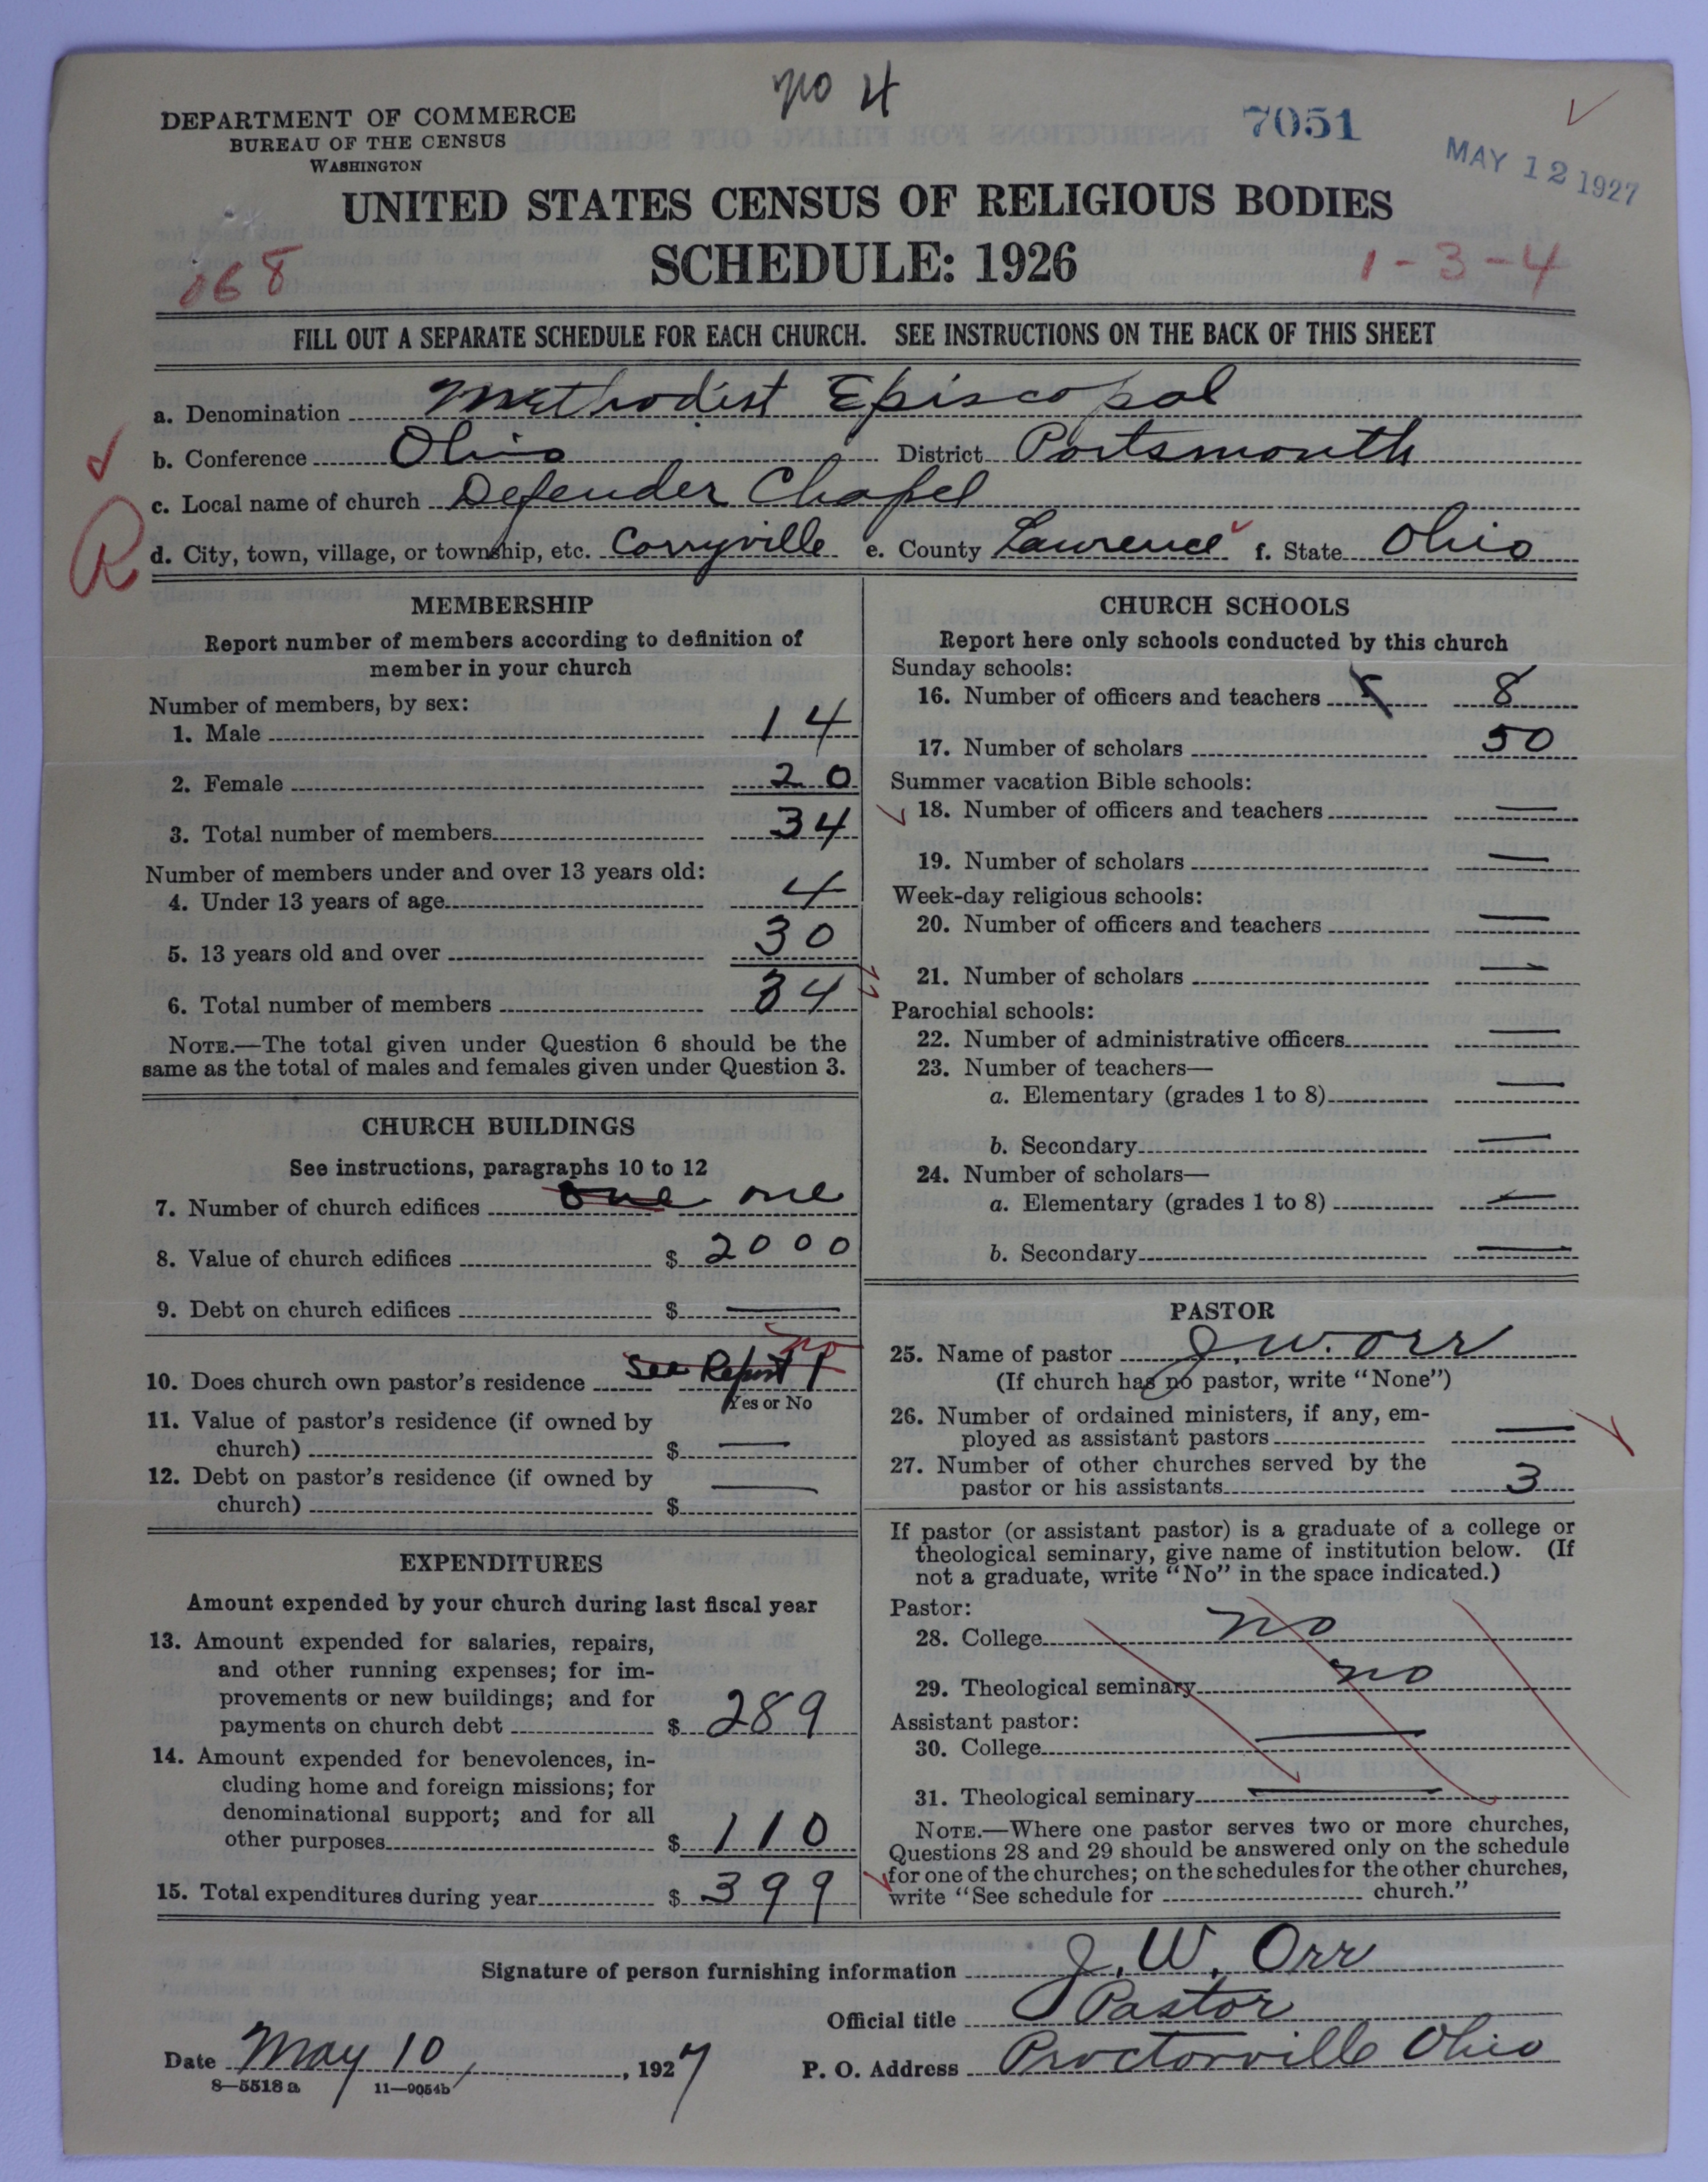 no 4
DEPARTMENT OF COMMERCE
BUREAU OF THE CENSUS
WASHINGTON
7051
MAY 12 1927
UNITED STATES CENSUS OF RELIGIOUS BODIES
SCHEDULE: 1926
168
1-3-4
FILL OUT A SEPARATE SCHEDULE FOR EACH CHURCH. SEE INSTRUCTIONS ON THE BACK OF THIS SHEET
a. Denomination Methodist Episcopal
b. Conference Ohio District Portsmouth
c. Local name of church Defender Chapel
R
d. City, town, village, or township, etc. Corryville e. County Lawrence f. State Ohio
MEMBERSHIP
Report number of members according to definition of
member in your church
Number of members, by sex:
1. Male 14
2. Female 20
3. Total number of members 34
Number of members under and over 13 years old:
4. Under 13 years of age 4
5. 13 years old and over 30
6. Total number of members 34
NOTE.—The total given under Question 6 should be the
same as the total of males and females given under Question 3.
CHURCH BUILDINGS
See instructions, paragraphs 10 to 12
7. Number of church edifices one one
8. Value of church edifices $ 2000
9. Debt on church edifices $ —
no
10. Does church own pastor's residence See Report 1
Yes or No
11. Value of pastor's residence (if owned by
church) $ —
12. Debt on pastor's residence (if owned by
church) $ —
EXPENDITURES
Amount expended by your church during last fiscal year
13. Amount expended for salaries, repairs,
and other running expenses; for im-
provements or new buildings; and for
payments on church debt $ 289
14. Amount expended for benevolences, in-
cluding home and foreign missions; for
denominational support; and for all
other purposes $ 110
15. Total expenditures during year $ 399
CHURCH SCHOOLS
Report here only schools conducted by this church
Sunday schools:
16. Number of officers and teachers 8
17. Number of scholars 50
Summer vacation Bible schools:
18. Number of officers and teachers —
19. Number of scholars —
Week-day religious schools:
20. Number of officers and teachers —
21. Number of scholars —
Parochial schools:
22. Number of administrative officers —
23. Number of teachers—
a. Elementary (grades 1 to 8) —
b. Secondary —
24. Number of scholars—
a. Elementary (grades 1 to 8) —
b. Secondary —
PASTOR
25. Name of pastor J. W. Orr
(If church has no pastor, write "None")
26. Number of ordained ministers, if any, em-
ployed as assistant pastors —
27. Number of other churches served by the
pastor or his assistants 3
If pastor (or assistant pastor) is a graduate of a college or
theological seminary, give name of institution below. (If
not a graduate, write "No" in the space indicated.)
Pastor:
28. College no
29. Theological seminary no
Assistant pastor:
30. College —
31. Theological seminary —
NOTE.—Where one pastor serves two or more churches,
Questions 28 and 29 should be answered only on the schedule
for one of the churches; on the schedules for the other churches,
write "See schedule for church."
Signature of person furnishing information J. W. Orr
Official title Pastor
Date May 10, 1927 P. O. Address Proctorville Ohio
8—5518 a 11—9054b